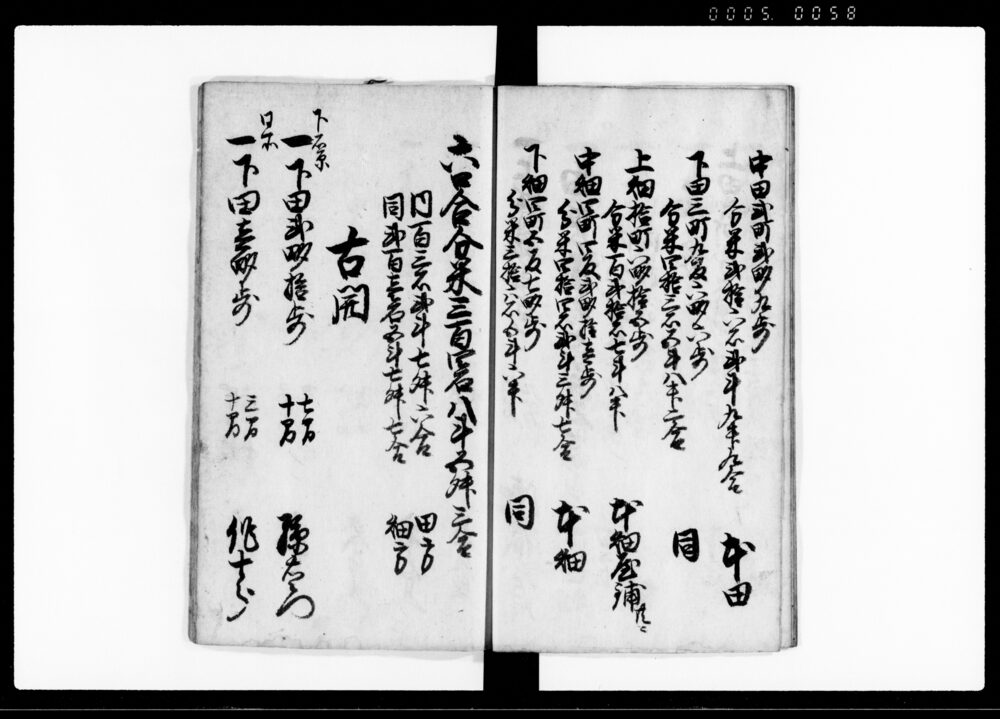 0005. 0058
中田弐町弐畝九歩
分米弐拾六石弐斗九升九合 本田
下田三町九反六畝六歩
分米四拾三石五斗八升二合 同
上畑拾町六畝拾五歩
分米百弐拾石七斗八升 本畑屋鋪共ニ
中畑四町四反弐畝拾壱歩
分米四拾四石弐斗三升七合 本畑
下畑四町五反七畝歩
分米三拾六石五斗六升 同
六口合分米三百四石八斗五升三合
内百三石弐斗七升六合 田方
同弐百壱石五斗七升七合 畑方
古開
下々京
一下田弐畝拾歩 七間 十間 孫右衛門
同所
一下田壱畝歩 三間 十間 作十郎